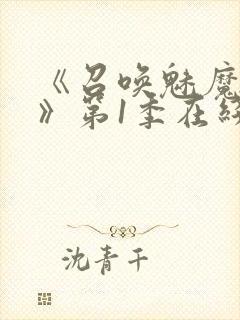 《召唤魅魔
》第1季在线
沈青千